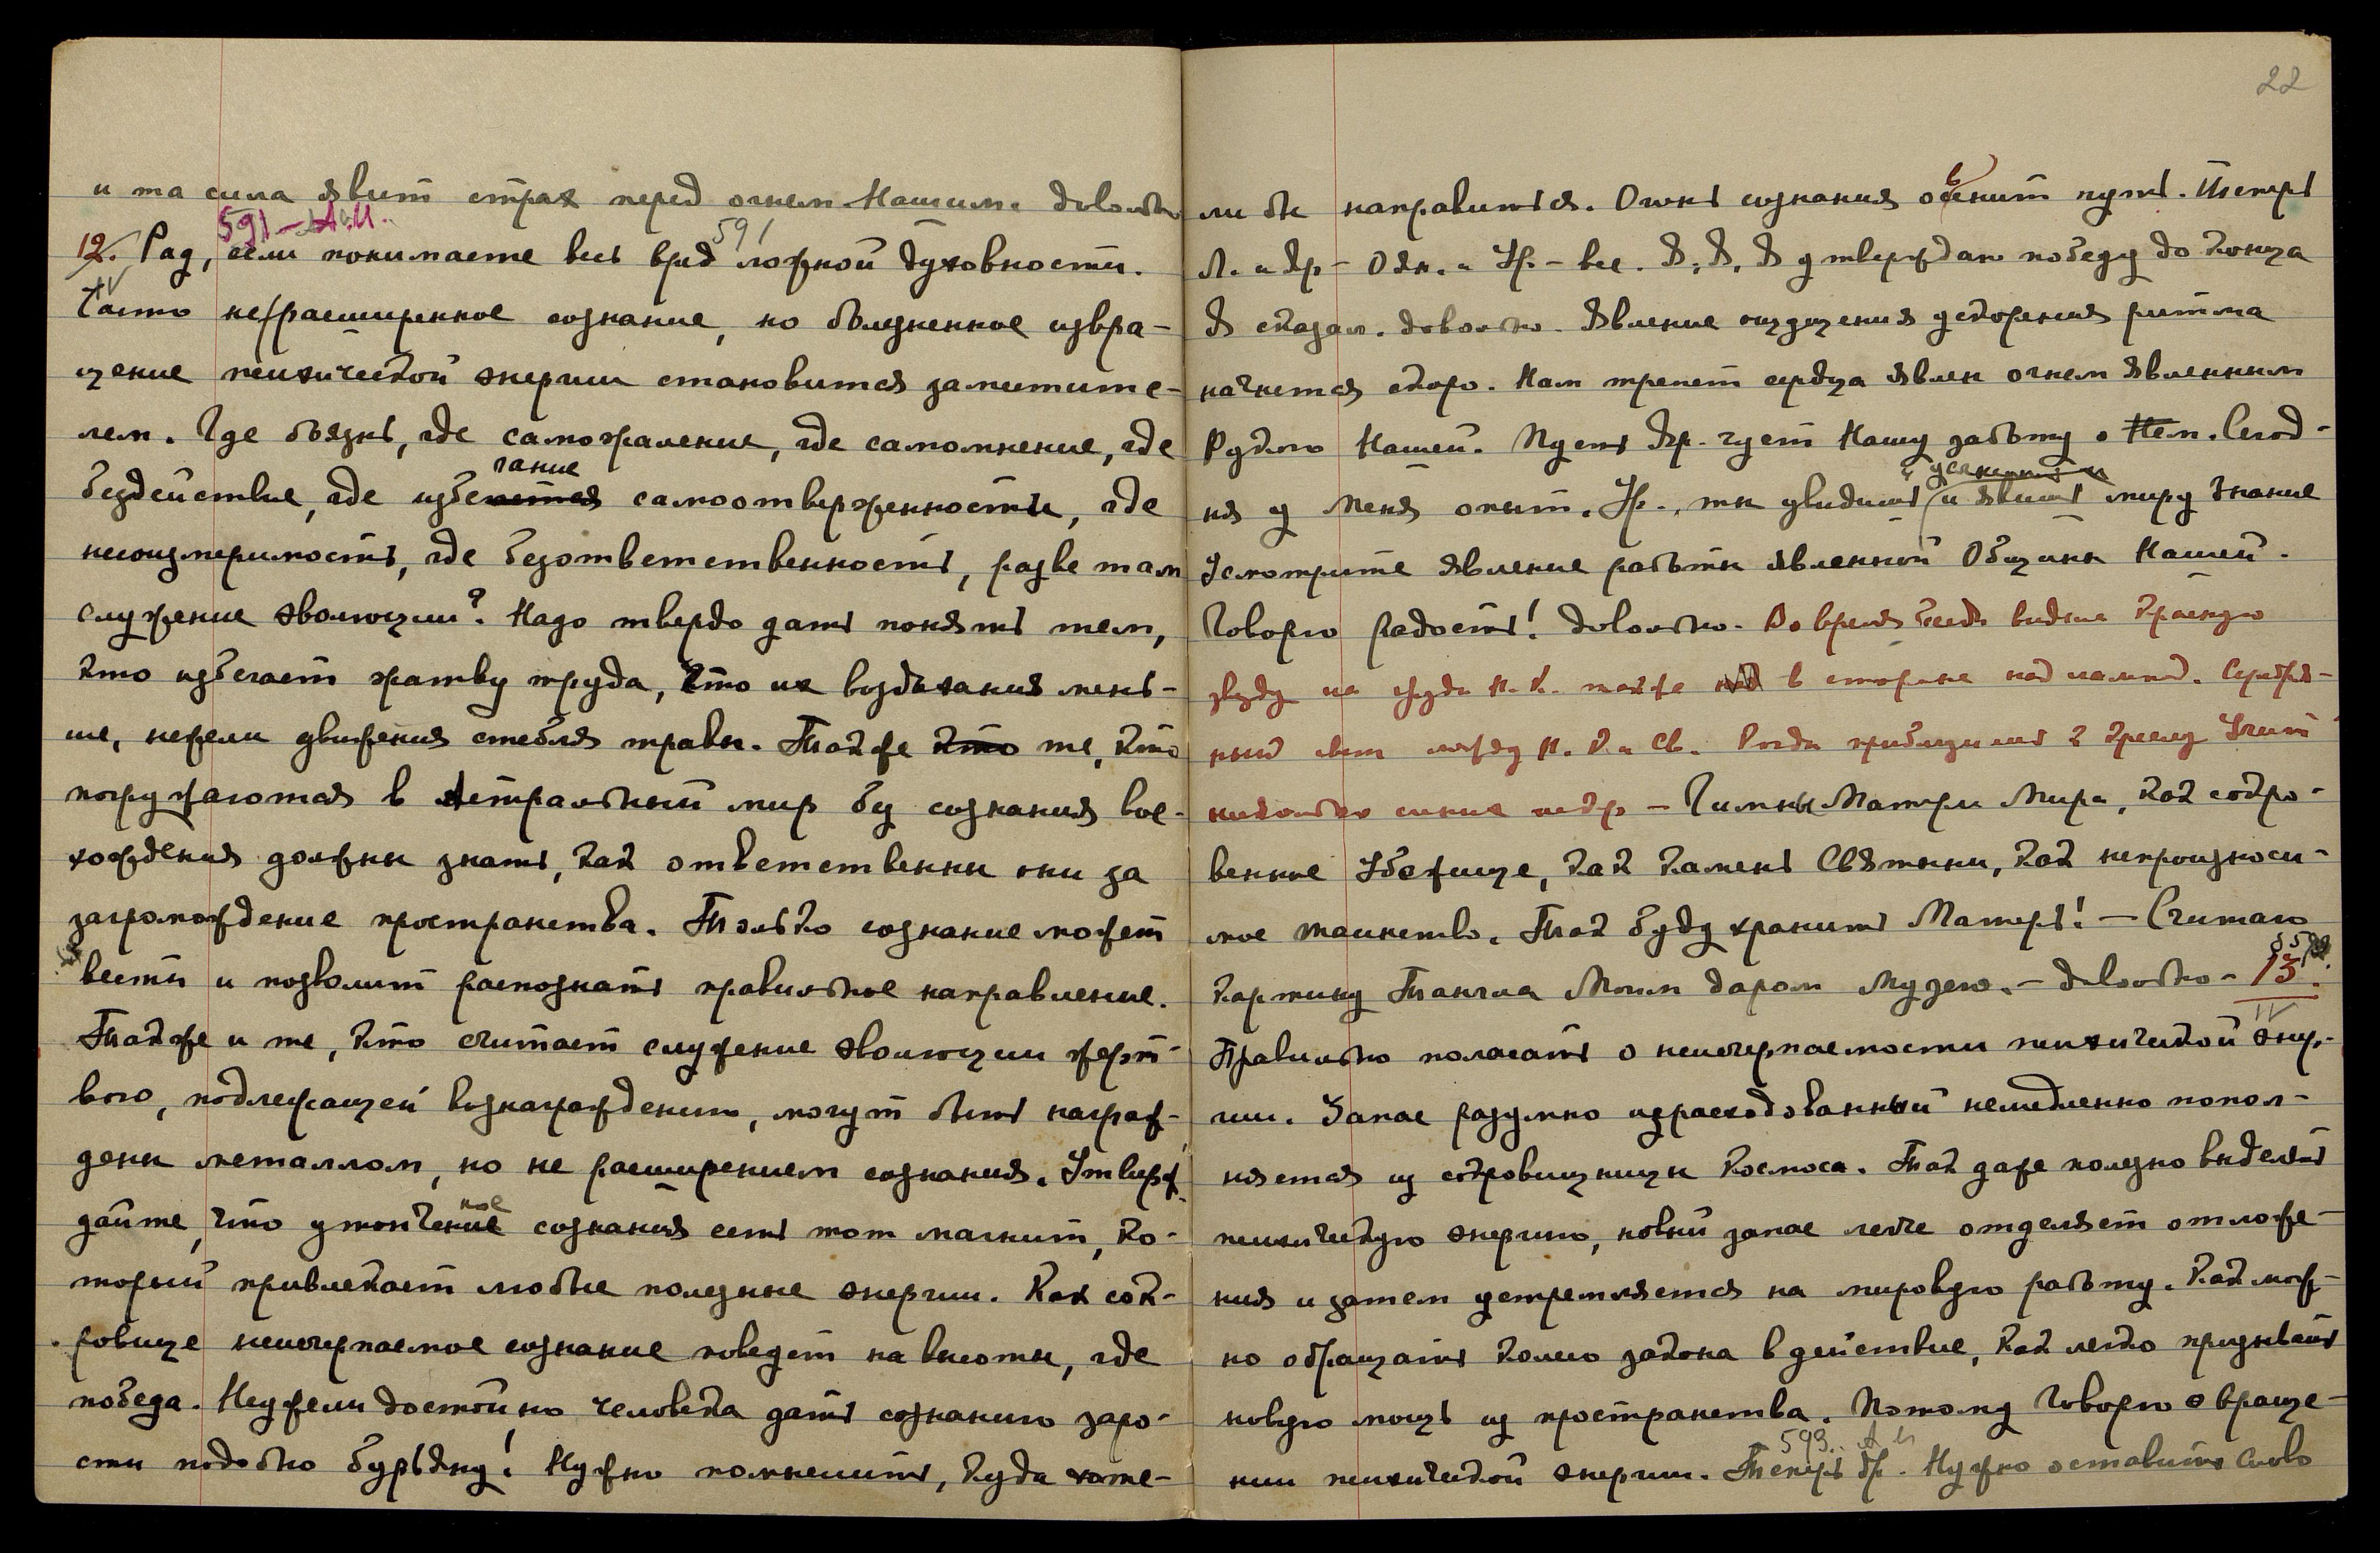 22
и та сила явит страх перед огнем Нашим. Довольно
591 – А.Й.
591
12. Рад, если понимаете весь вред ложной духовности.
IV
Часто не расширенное сознание, но болезненное извра-
щение психической энергии становится заместите-
лем. Где боязнь, где саможаление, где самомнение, где
гание
бездействие, где избегается самоотверженности, где
несоизмеримость, где безответственность, разве там
служение эволюции? Надо твердо дать понять тем,
кто избегает жатву труда, что их воздыхания мень-
ше, нежели движения стебля травы. Также кто те, кто
погружаются в Астральный мир без сознания вос-
хождения должны знать, как ответственны они за
загромождение пространства. Только сознание может
вести и позволит распознать правильное направление.
Также и те, кто считает служение эволюции жерт-
вою, подлежащей вознаграждению, могут быть награж-
дены металлом, но не расширением сознания. Утверж-
ное
дайте, что утончение сознания есть тот магнит, ко-
торый привлекает любые полезные энергии. Как сок-
ровище неисчерпаемое сознание поведет на высоты, где
победа. Неужели достойно человека дать сознанию заро-
сти подобно бурьяну! Нужно помыслить, куда хоте-
ли бы направиться. Огонь сознания осенит путь. Теперь
Л. и Яр – Оян. и Ур. – все. Я, Я, Я утверждаю победу до конца
Я сказал. Довольно. Явление ощущения ускорения ритма
начнется скоро. Нам трепет сердца явлен огнем явленным
Рукою Нашей. Пусть Яр. чует Нашу заботу о Нем. Сегод-
ня у Меня опыт. Ур., ты увидишь и явишь миру знание
Усмотрите явление работы явленной Общины Нашей.
Говорю радость! Довольно. Во время беседы видела красную
звезду на груди Н.К. также в стороне над лампой. Серебря-
ный свет между Н.К. и Св. Когда приблизилась к креслу Учит
несколько синих искр – Гимны Матери Мира, как сокро-
венное Убежище, как Камень Святыни, как непроизноси-
мое таинство. Так буду хранить Матерь! – Считаю
картину Тангла Моим даром Музею. – Довольно – 13.
IV
Правильно полагать о неисчерпаемости психической энер-
гии. Запас разумно израсходованный немедленно попол-
няется из сокровищницы Космоса. Так даже полезно выделять
психическую энергию, новый запас легче отделяет отложе-
ния и затем устремляется на мировую работу. Как мож-
но обращать колесо закона в действие, как легко призывать
новую мощь из пространства. Потому Говорю о враще-
593.
нии психической энергии. Теперь др. Нужно оставить слово